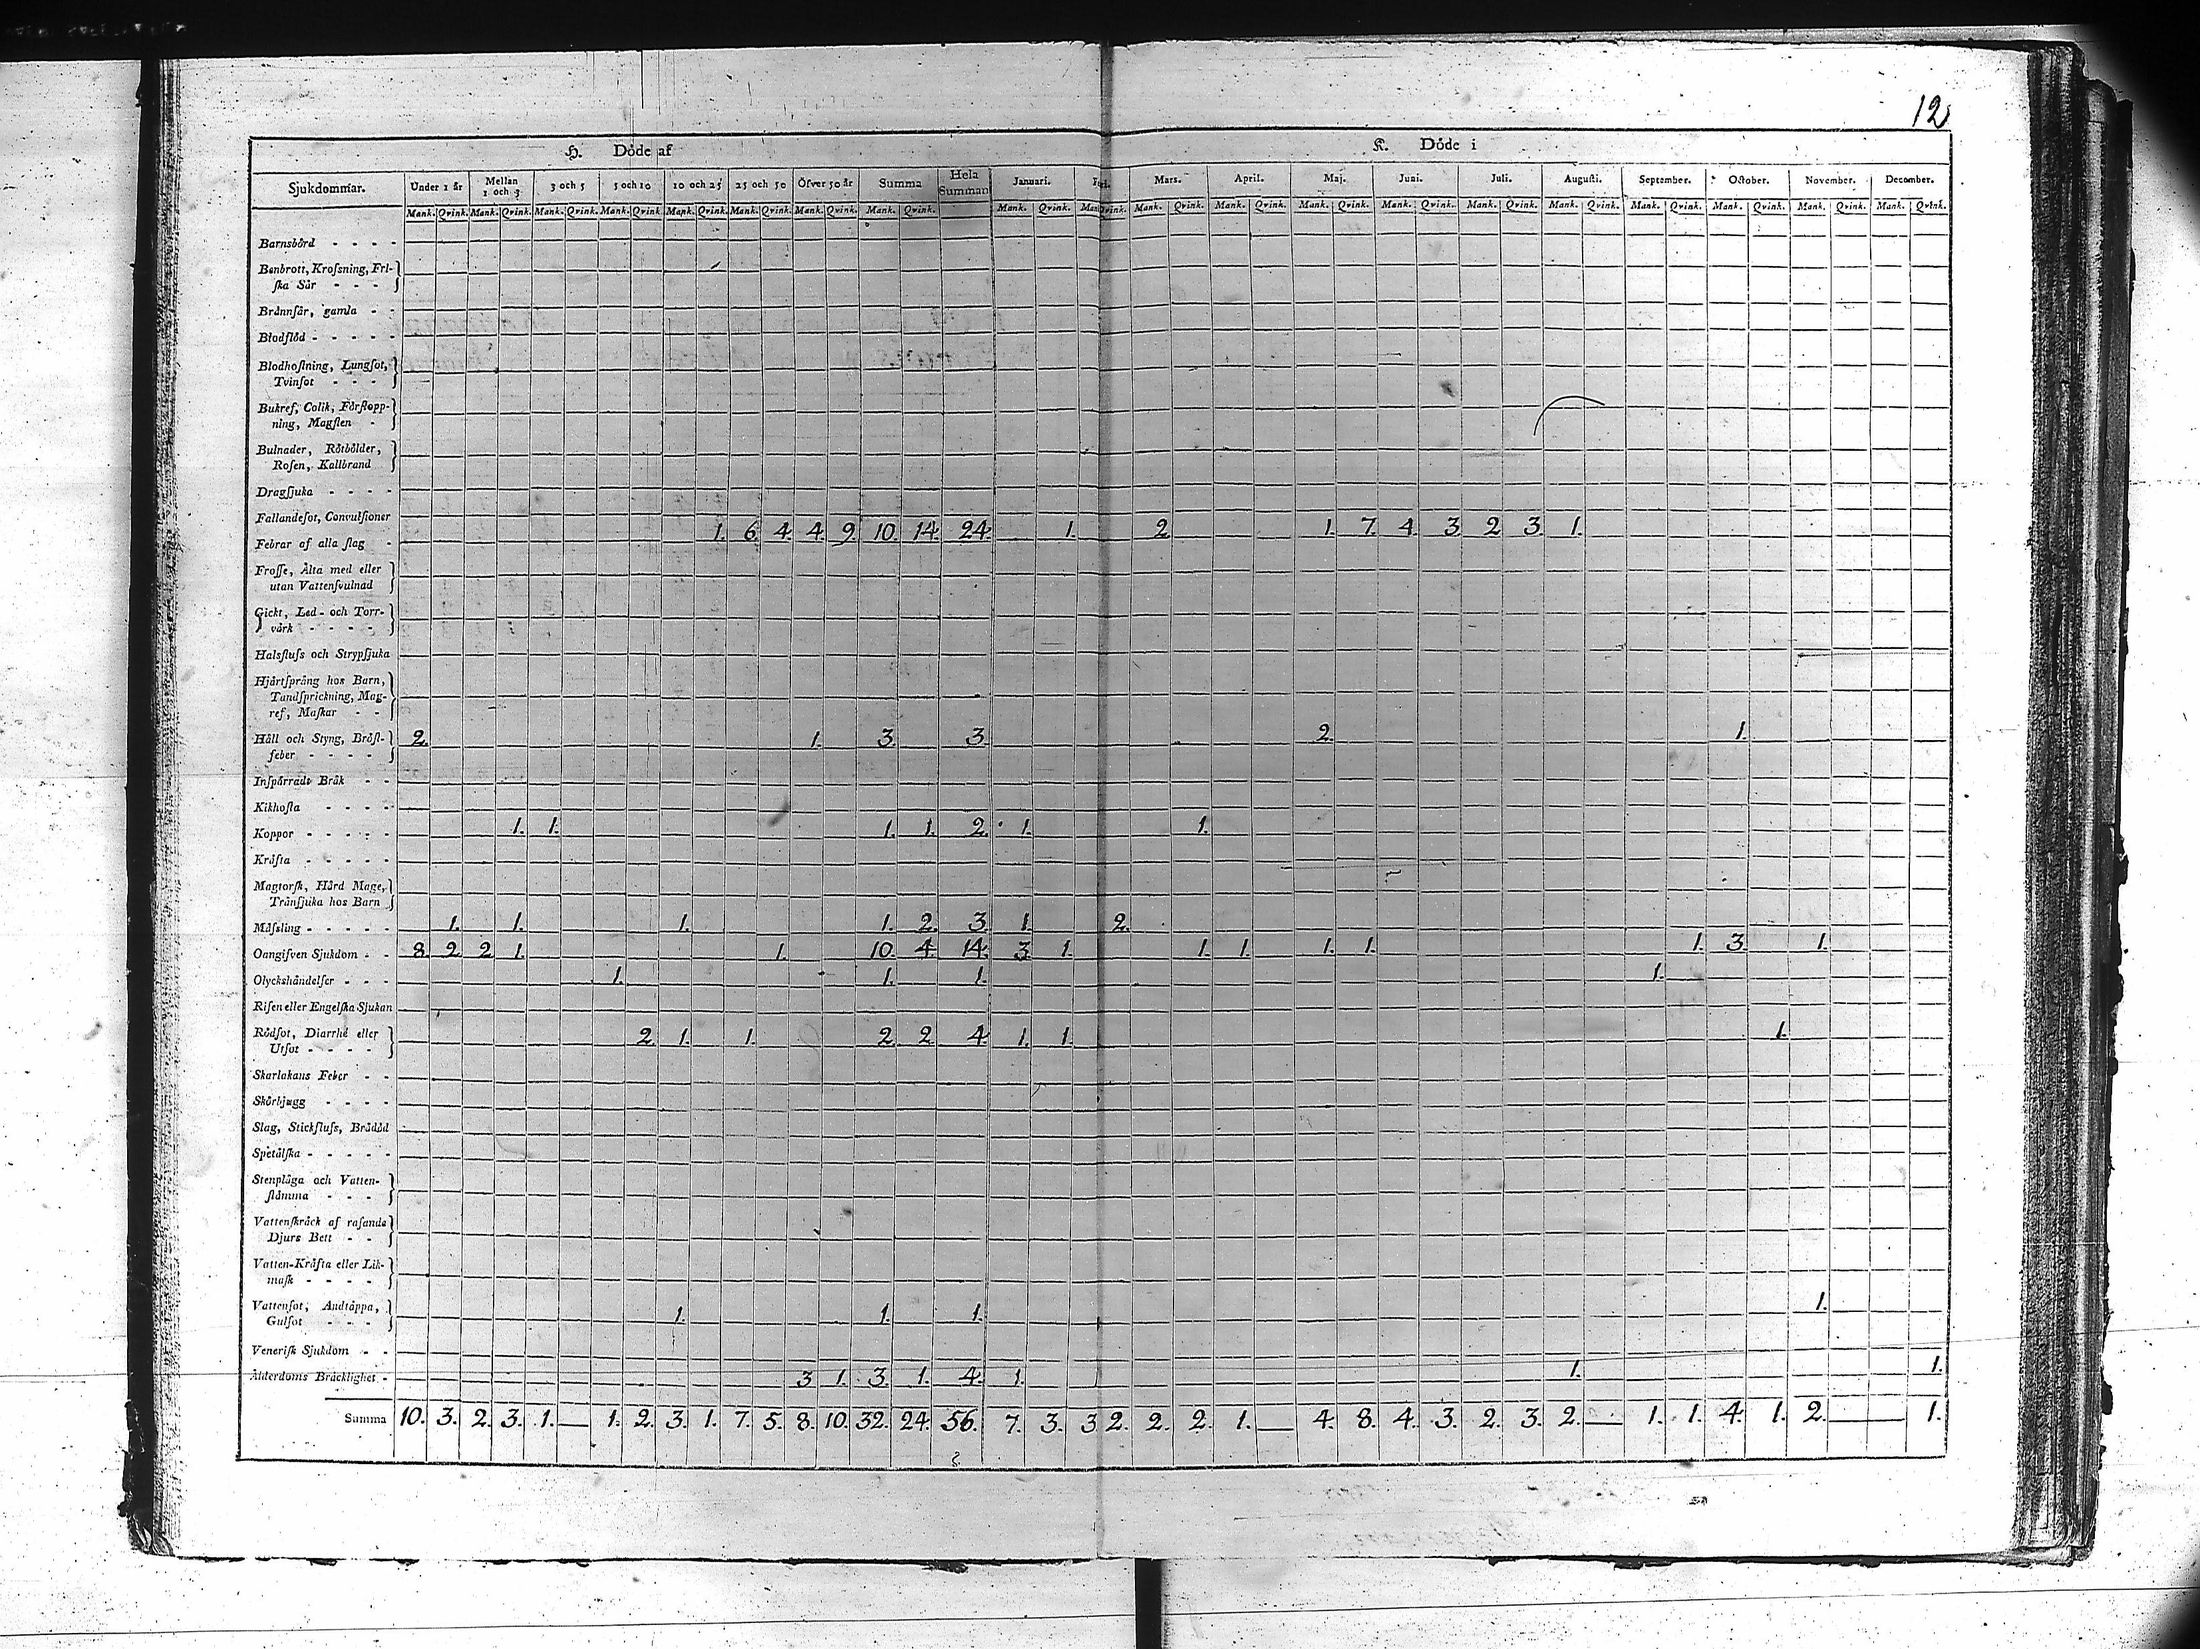 12
H. Döde af K. Döde i
Sjukdommar. Under 1 år Mellan 1 och 3 3 och 5 5 och 10 10 och 25 25 och 50 Öfver 50 år Summa Hela Summan Januari. Mars. April. Maj. Juni. Juli. Augusti. September. October. November. December.
Mank. Qvink. Mank. Qvink. Mank. Qvink. Mank. Qvink. Mank. Qvink. Mank. Qvink. Mank. Qvink. Mank. Qvink. Mank. Qvink. Mank. Qvink. Mank. Qvink. Mank. Qvink. Mank. Qvink. Mank. Qvink. Mank. Qvink. Mank. Qvink. Mank. Qvink. Mank. Qvink. Mank. Qvink. Mank. Qvink.
Barnsbörd - - - -
Benbrott, Krosning, Fri-
ska Sår - - -
Brännsår, gamla - -
Blodflöd - - - - -
Blodhostning, Lungsot,
Tvinsot - - -
Bukref, Colik, Förstopp-
ning, Magsten -
Bulnader, Rötbölder,
Rosen, Kallbrand
Dragsjuka - - - -
Fallandesot, Convulsioner
Febrar af alla slag - 1. 6. 4. 4. 9. 10. 14. 24. 1. 2. 1. 7. 4. 3. 2. 3. 1.
Frosse, Älta med eller
utan Vattensvulnad
Gickt, Led- och Torr-
värk - - - -
Halsfluss och Strypsjuka
Hjärtsprång hos Barn,
Tandsprickning, Mag-
ref, Maskar - -
Håll och Styng, Bröst- 2. 1. 3. 3. 2. 1.
feber - - - -
Inspärradt Bråk - -
Kikhosta - - - -
Koppor - - - - - 1. 1. 1. 1. 2. 1. 1.
Kräfta - - - - -
Magtorsk, Hård Mage,
Tränsjuka hos Barn
Mässling - - - - - 1. 1. 1. 1. 2. 3. 1. 2.
Oangifven Sjukdom - - 8. 2. 2. 1. 1. 10. 4. 14. 3. 1. 1. 1. 1. 1. 1. 3. 1.
Olyckshändelser - - - 1. 1. 1. 1.
Risen eller Engelska Sjukan
Rödsot, Diarrhé eller 2. 1. 1. 2. 2. 4. 1. 1. 1.
Utsot - - - -
Skarlakans Feber - -
Skörbjugg - - - -
Slag, Stickfluss, Brådöd
Spetälska - - - - -
Stenplåga och Vatten-
stämma - - -
Vattenskräck af rasande
Djurs Bett - -
Vatten-Kräfta eller Lik-
mask - - - -
Vattensot, Andtäppa, 1. 1. 1. 1.
Gulsot - - -
Venerisk Sjukdom - -
Ålderdoms Bräcklighet - 3. 1. 3. 1. 4. 1. 1. 1.
Summa 10. 3. 2. 3. 1. — 1. 2. 3. 1. 7. 5. 8. 10. 32. 24. 56. 7. 3. 3. 2. 2. 2. 1. — 4. 8. 4. 3. 2. 3. 2. — 1. 1. 4. 1. 2. — — 1.